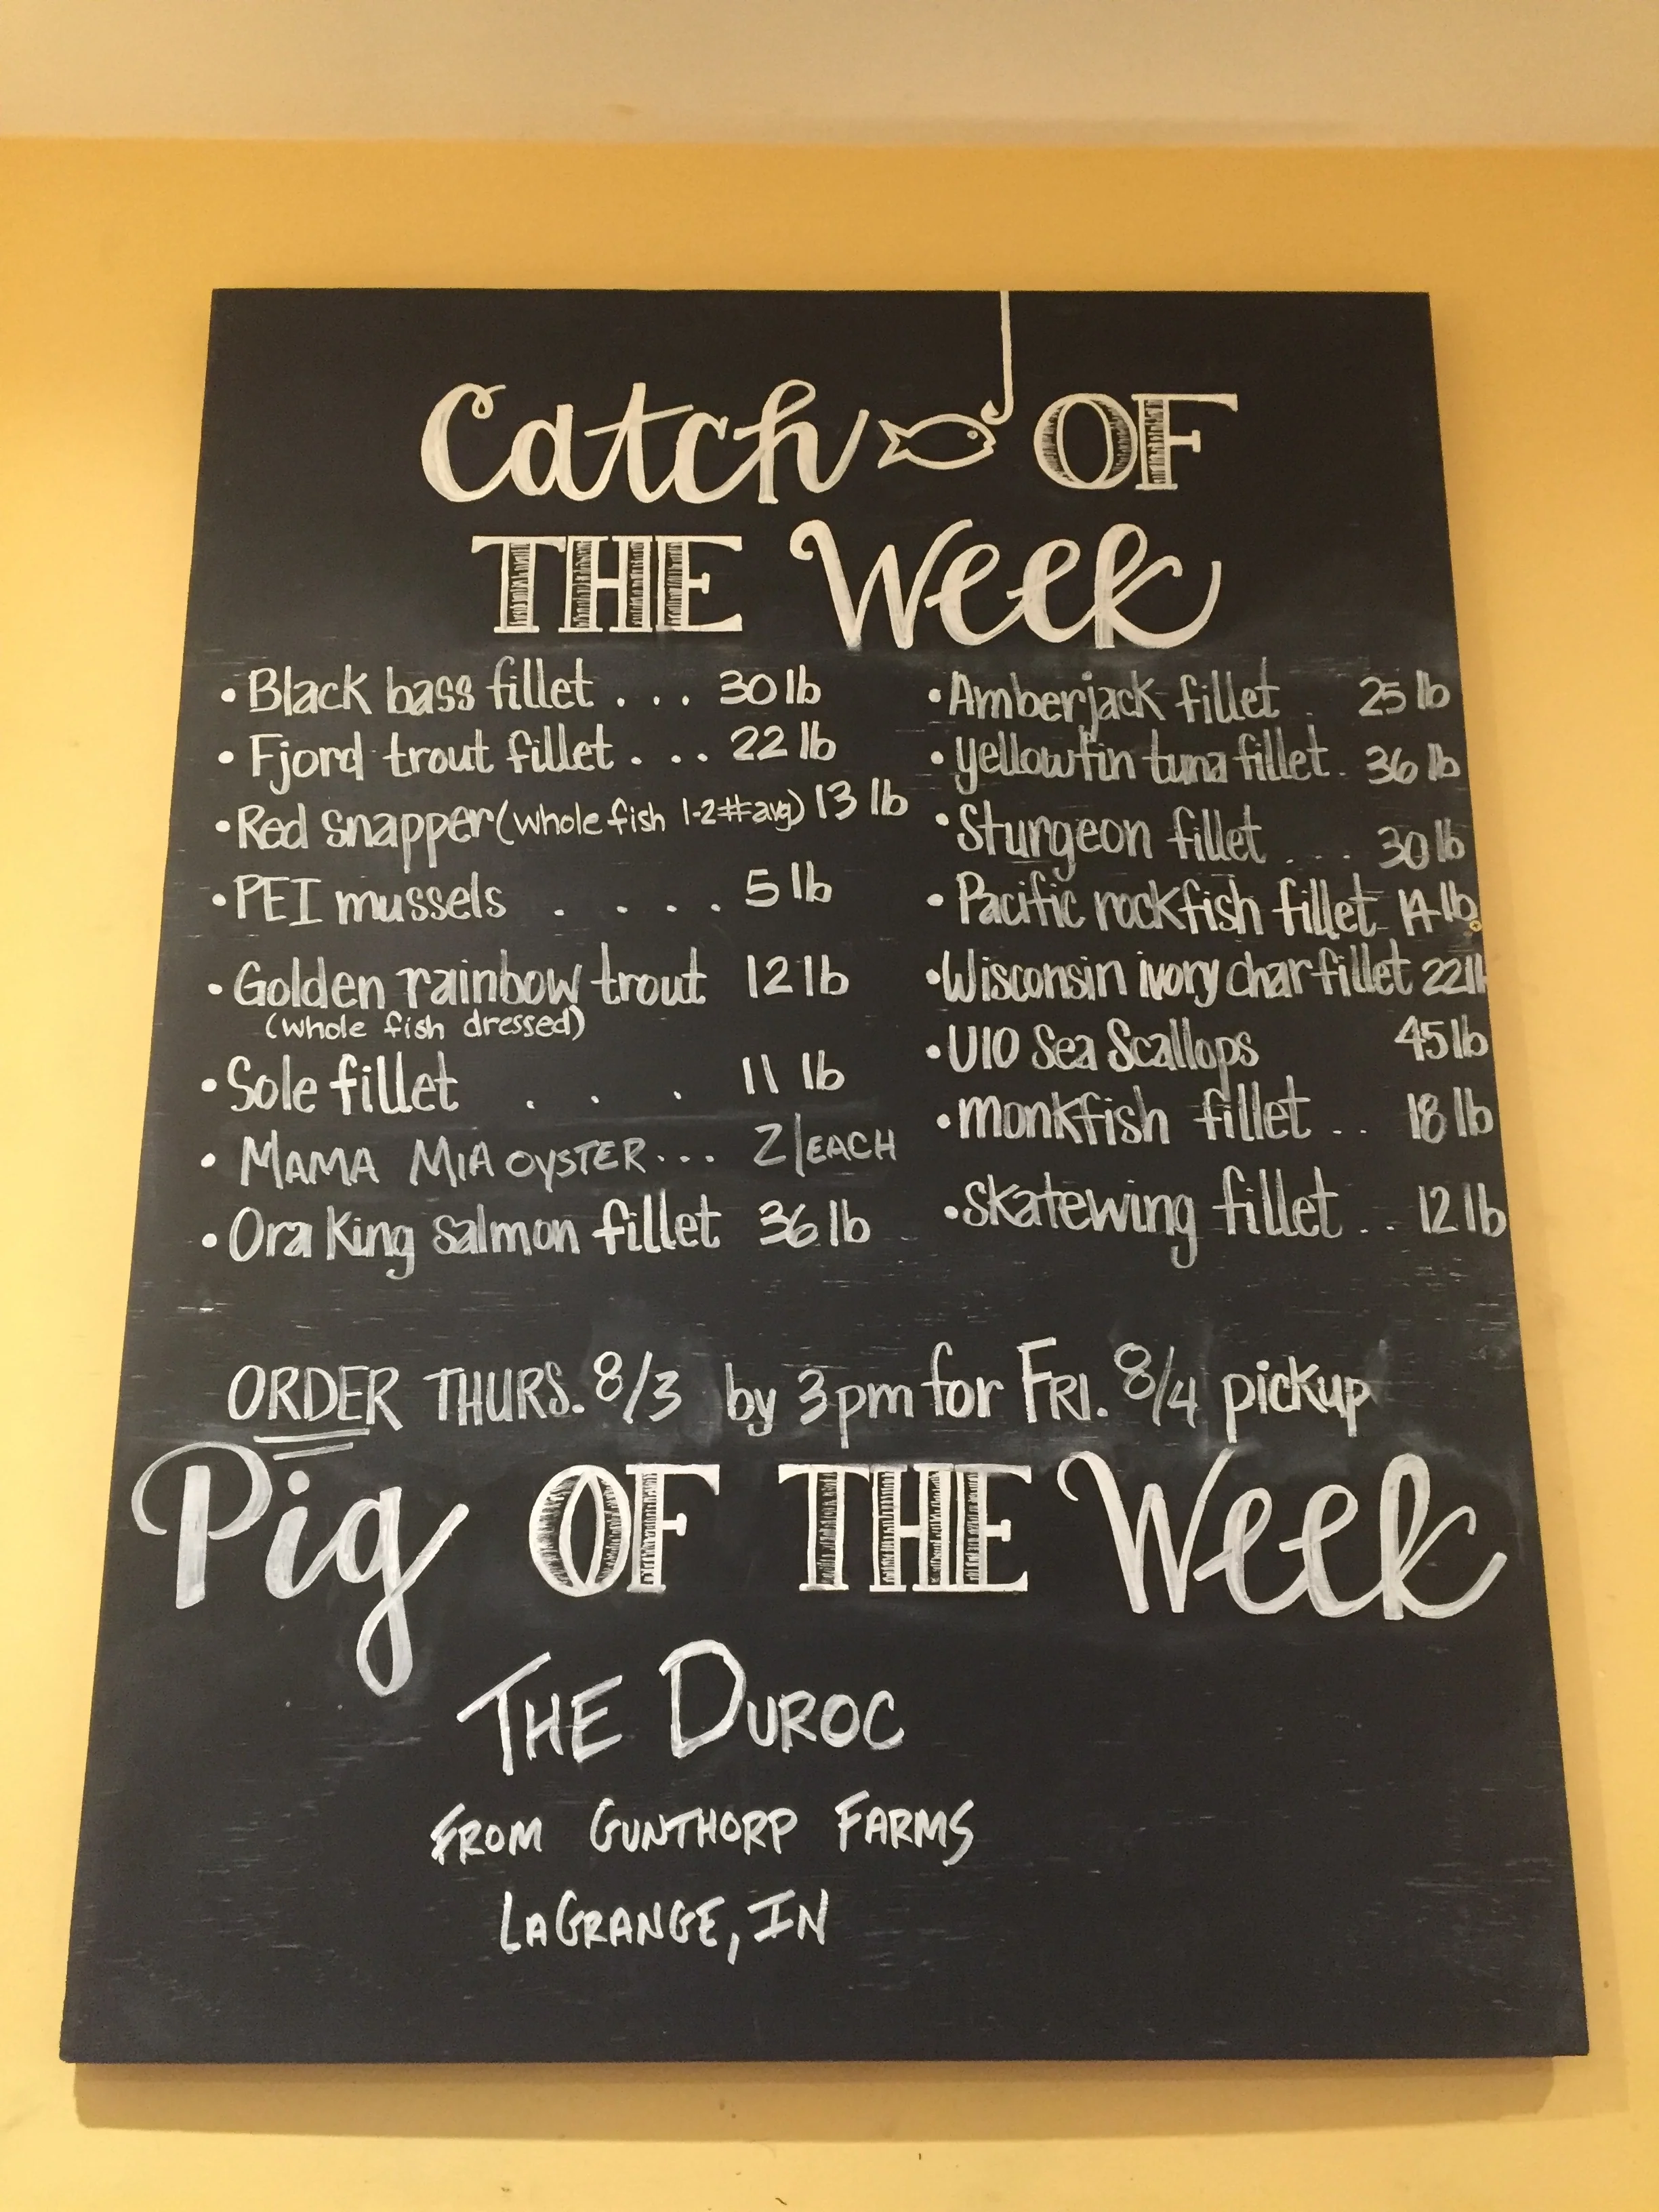 Catch OF
THE Week
• Black bass fillet . . . 30 lb
• Fjord trout fillet . . . 22 lb
• Red snapper (whole fish 1-2# avg) 13 lb
• PEI mussels . . . . 5 lb
• Golden rainbow trout 12 lb
(whole fish dressed)
• Sole fillet . . . 11 lb
• MAMA MIA OYSTER... 2/EACH
• Ora King salmon fillet 36 lb
• Amberjack fillet . 25 lb
• yellowfin tuna fillet. 36 lb
• Sturgeon fillet .... 30 lb
• Pacific rockfish fillet 14 lb
• Wisconsin ivory char fillet 22 lb
• U10 Sea Scallops 45 lb
• monkfish fillet .. 18 lb
• skatewing fillet .. 12 lb
ORDER THURS. 8/3 by 3pm for FRI. 8/4 pickup
Pig OF THE Week
THE DUROC
FROM GUNTHORP FARMS
LAGRANGE, IN